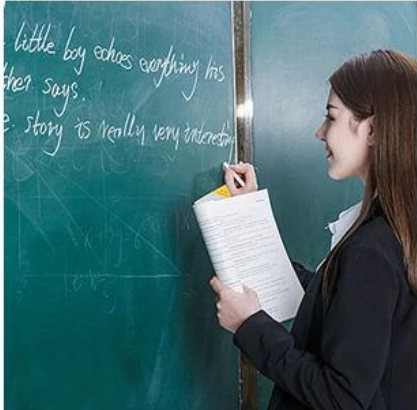 little boy echoes everything his
ther says.
e story is really very interesting